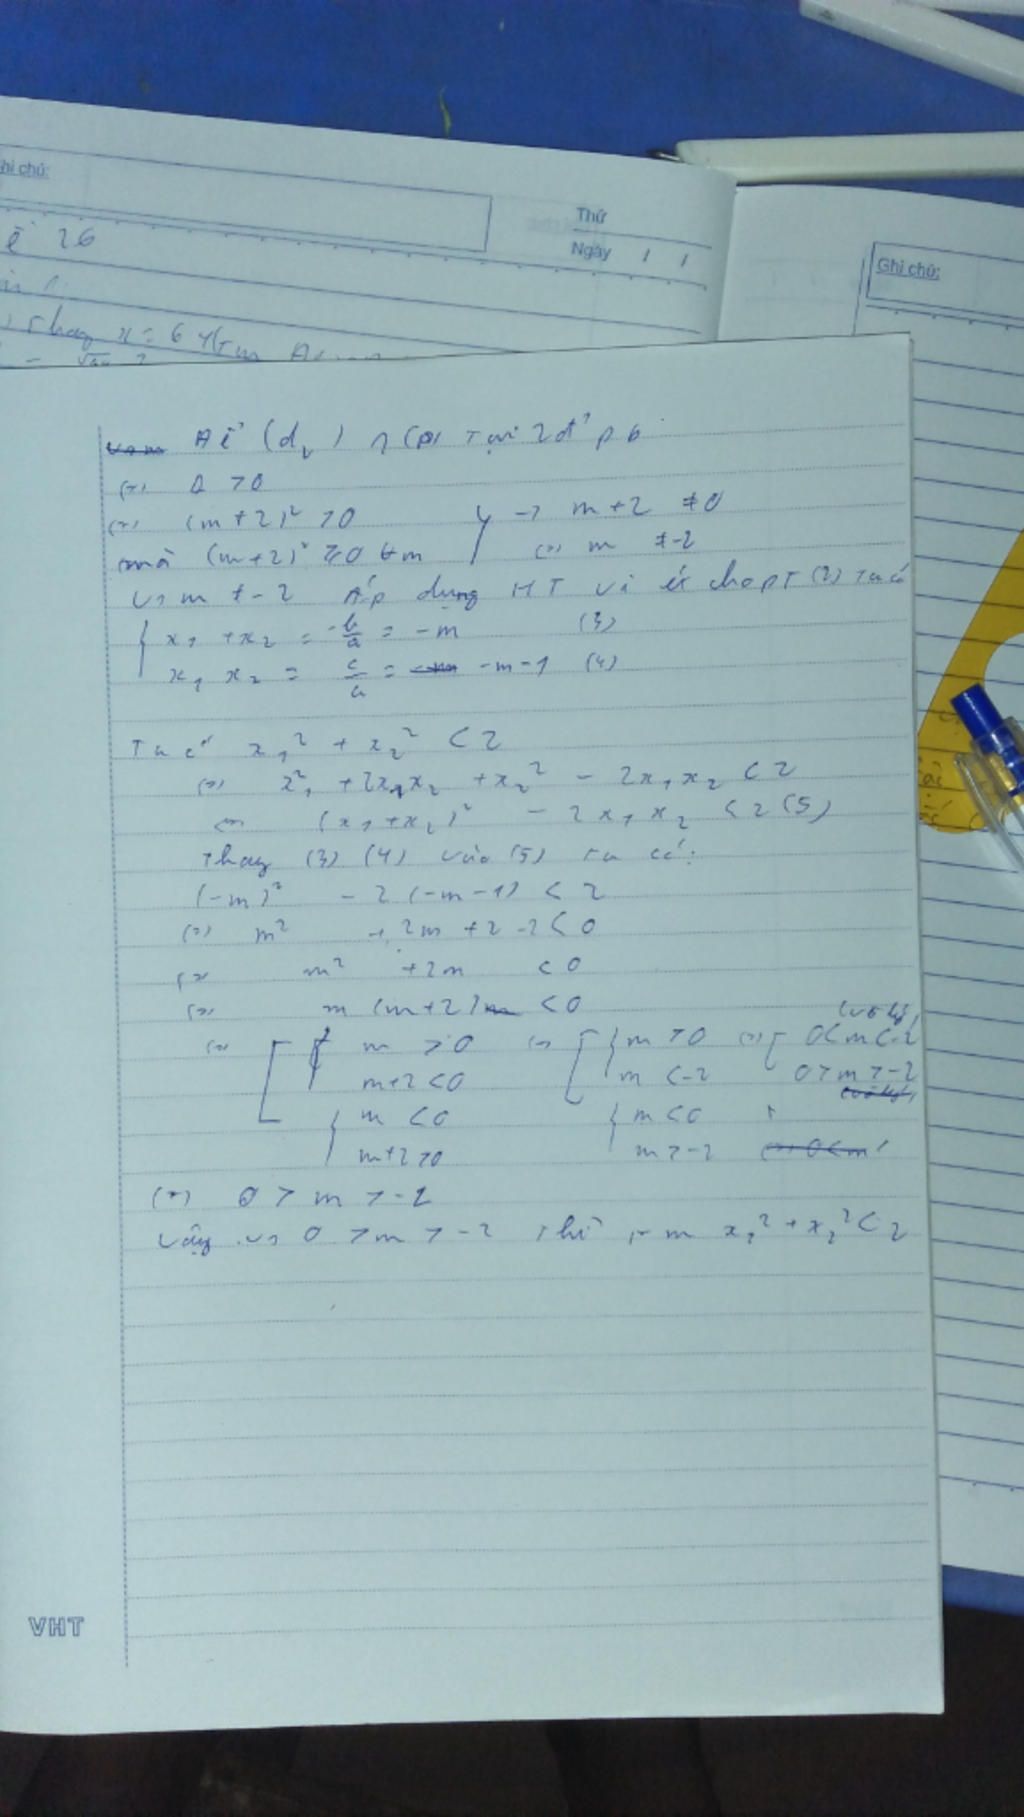 Ghi chú:
Thứ
Ngày / /
Ghi chú:
26
thay x = 6
Để (d₂) ∩ (P) Tại 2 đ' pb
<=> Δ > 0
<=> (m + 2)² > 0
mà (m + 2)² ≥ 0 ∀m } -> m + 2 ≠ 0
<=> m ≠ -2
Với m ≠ -2 Áp dụng HT Vi ét cho pT (2) Ta có
{ x₁ + x₂ = -b/a = -m (3)
x₁ x₂ = c/a = -m - 1 (4)
Ta có x₁² + x₂² < 2
<=> x²₁ + 2x₁x₂ + x₂² - 2x₁x₂ < 2
<=> (x₁ + x₂)² - 2x₁x₂ < 2 (5)
Thay (3) (4) vào (5) ta có:
(-m)² - 2(-m - 1) < 2
<=> m² + 2m + 2 - 2 < 0
<=> m² + 2m < 0
<=> m (m + 2) < 0
<=> [ { m > 0 <=> [ { m > 0 <=> [ 0 < m < -2 (vô lý)
m + 2 < 0 m < -2 0 > m > -2
{ m < 0 { m < 0
m + 2 > 0 m > -2
<=> 0 > m > -2
Vậy với 0 > m > -2 thì t/m x₁² + x₂² < 2
VHT